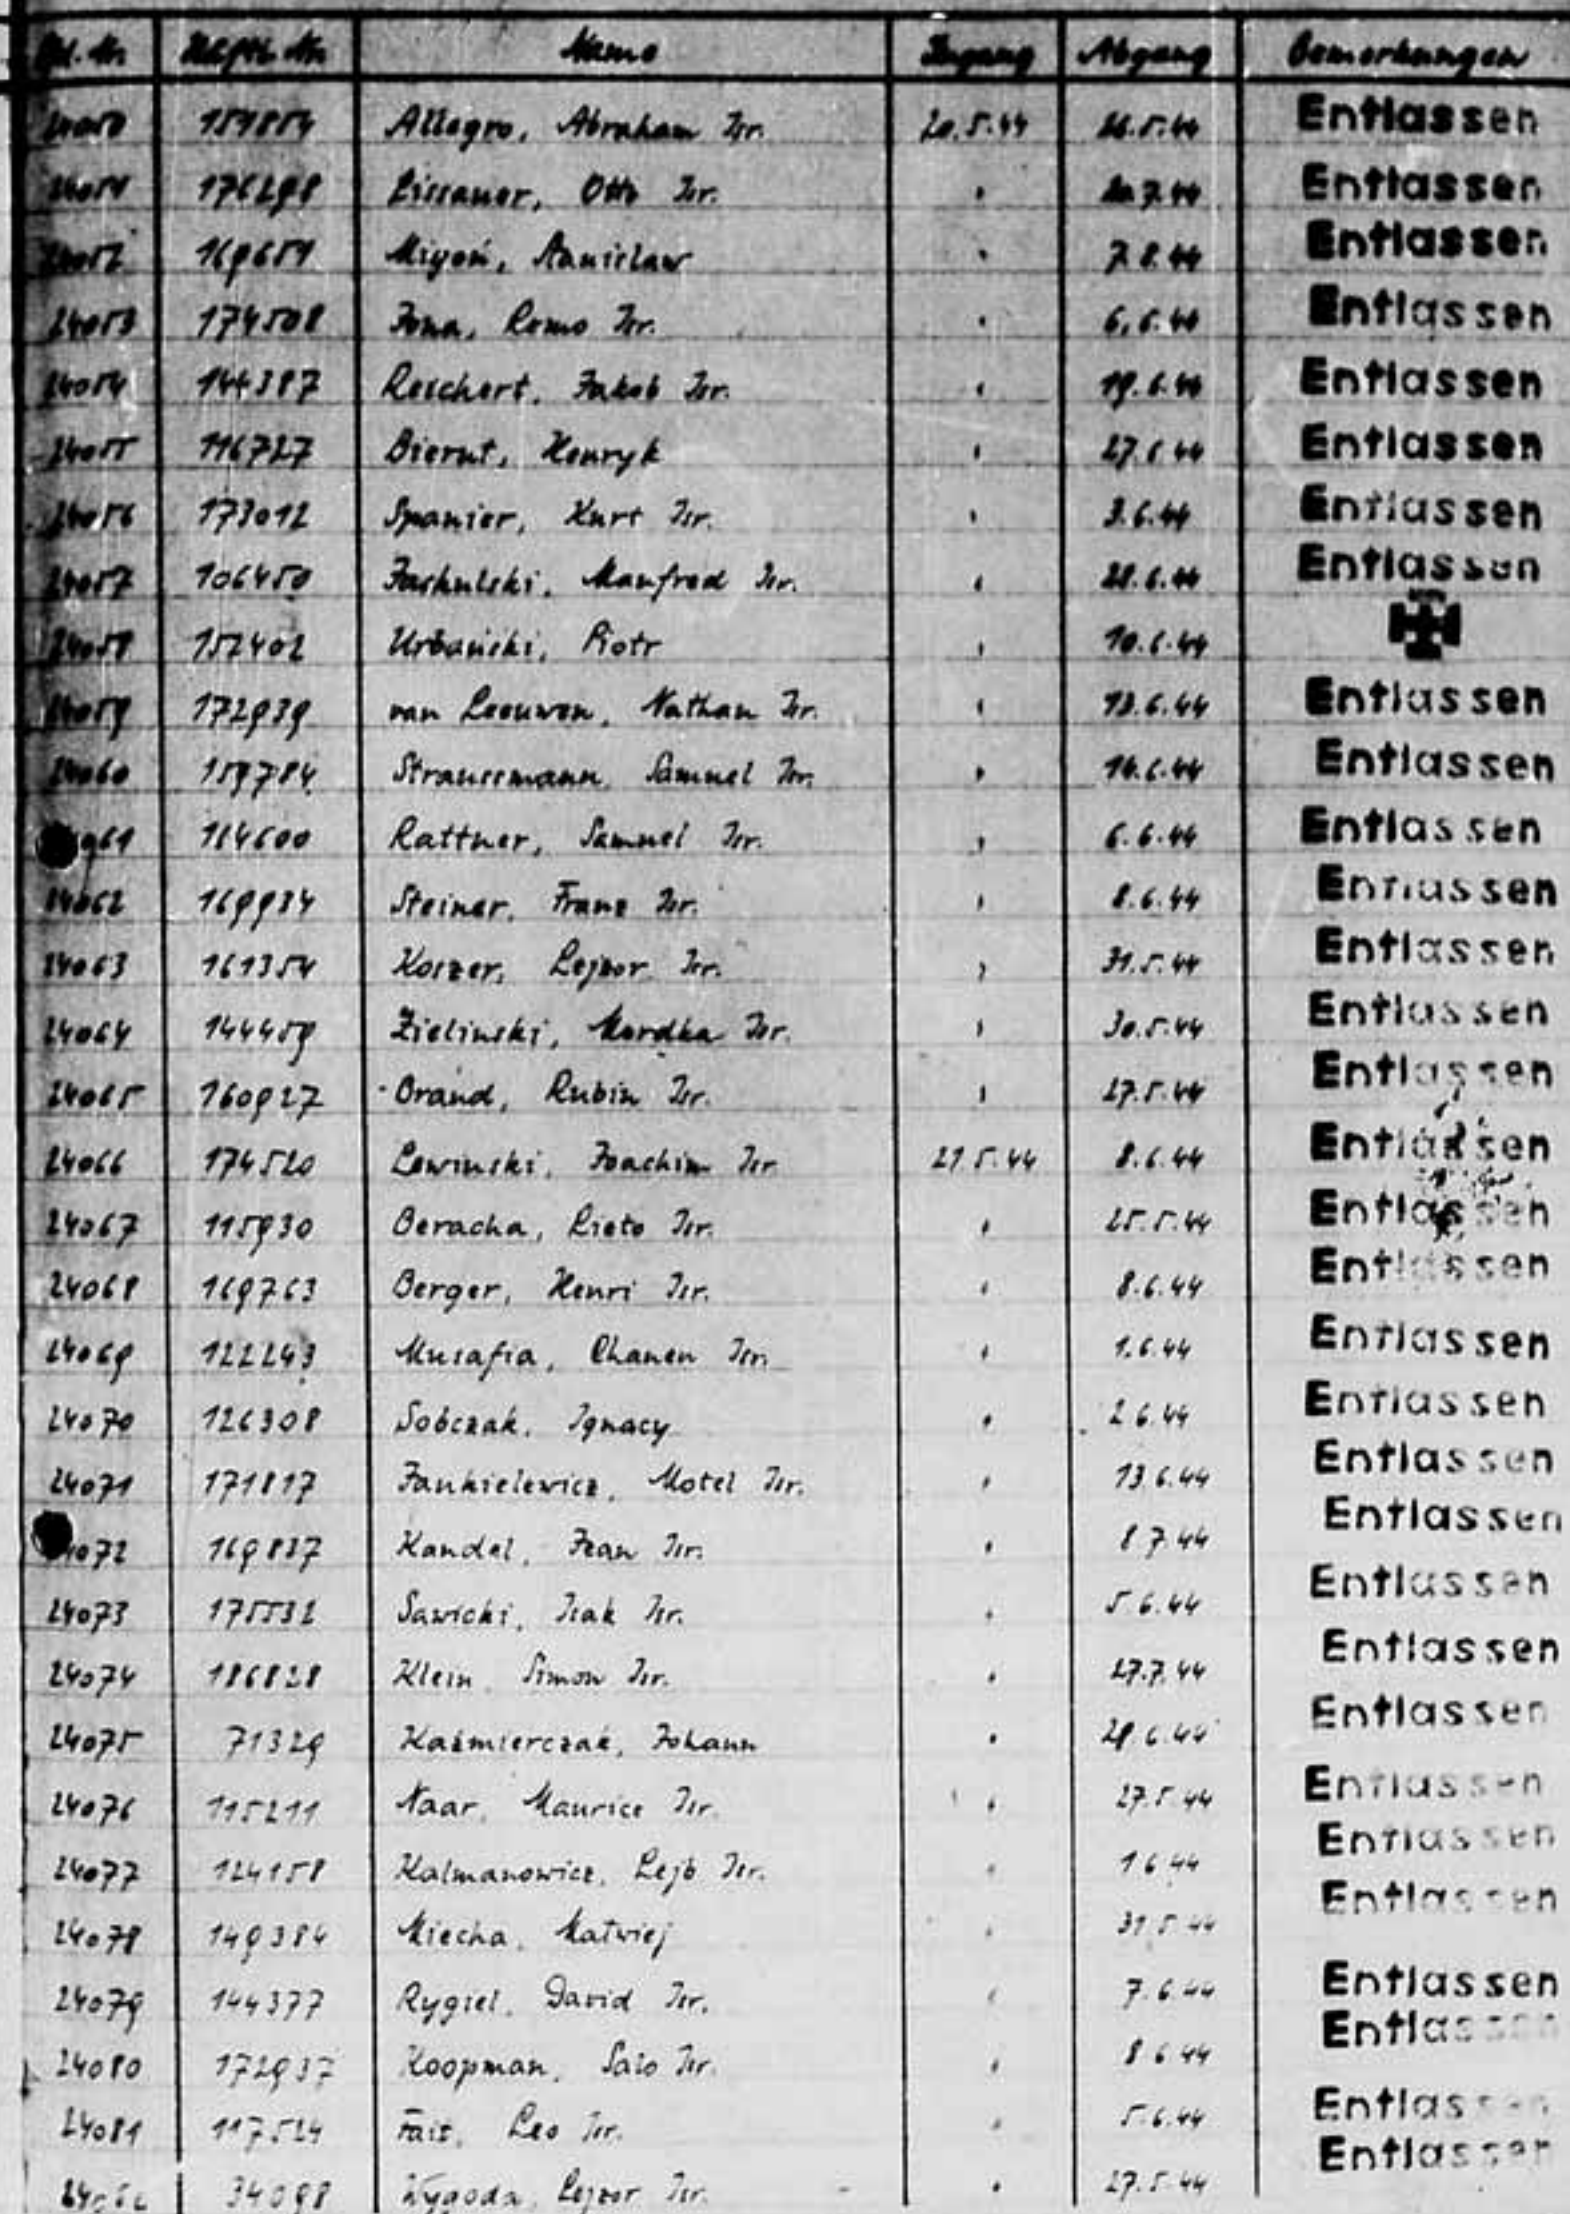 Häftl. Nr. Name Zugang Abgang Bemerkungen
24050 Allegro, Abraham Isr. 20.5.44 26.5.44 Entlassen
176298 Lissauer, Otto Isr. " 20.7.44 Entlassen
24052 169651 Migoń, Stanisław " 7.8.44 Entlassen
24053 174508 Jona, Remo Isr. " 6.6.44 Entlassen
24054 144387 Reichert, Jakob Isr. " 19.6.44 Entlassen
24055 116727 Bierut, Henryk " Entlassen
24056 173012 Spanier, Kurt Isr. " 3.6.44 Entlassen
24057 106450 Manfred Isr. " 28.6.44 Entlassen
152402 Urbański, Piotr " 10.6.44
24059 172939 van Leeuwen, Nathan Isr. " 13.6.44 Entlassen
24060 159784 Straussmann, Samuel Isr. " 14.6.44 Entlassen
164600 Rattner, Samuel Isr. " 6.6.44 Entlassen
24062 169934 Steiner, Franz Isr. " 8.6.44 Entlassen
24063 161354 Koszer, Lejzor Isr. " 31.5.44 Entlassen
24064 144459 Zielinski, Mordka Isr. " 30.5.44 Entlassen
24065 160927 Brand, Rubin Isr. " 27.5.44 Entlassen
24066 174520 Lewinski, Joachim Isr. 21.5.44 8.6.44 Entlassen
24067 115930 Beracha, Lieto Isr. " 25.5.44 Entlassen
24068 169763 Berger, Henri Isr. " 8.6.44 Entlassen
24069 122243 Musafia, Chanen Isr. " 1.6.44 Entlassen
24070 126308 Sobczak, Ignacy " 2.6.44 Entlassen
24071 171817 Jankielewicz, Motel Isr. " 13.6.44 Entlassen
24072 169837 Kandel, Jean Isr. " 8.7.44 Entlassen
24073 175532 Sawicki, Isak Isr. " 5.6.44 Entlassen
24074 186828 Klein, Simon Isr. " 27.7.44 Entlassen
24075 71329 Kaźmierczak, Johann " 28.6.44 Entlassen
24076 115211 Naar, Maurice Isr. " 27.5.44 Entlassen
24077 124158 Kalmanowicz, Lejb Isr. " 1.6.44 Entlassen
24078 149384 Miecha, Matwiej " 31.5.44 Entlassen
24079 144377 Rygiel, David Isr. " 7.6.44 Entlassen
24080 172937 Koopman, Salo Isr. " 8.6.44 Entlassen
24081 117524 Fais, Leo Isr. " 5.6.44 Entlassen
34098 Wygoda, Lejzor Isr. " 27.5.44 Entlassen